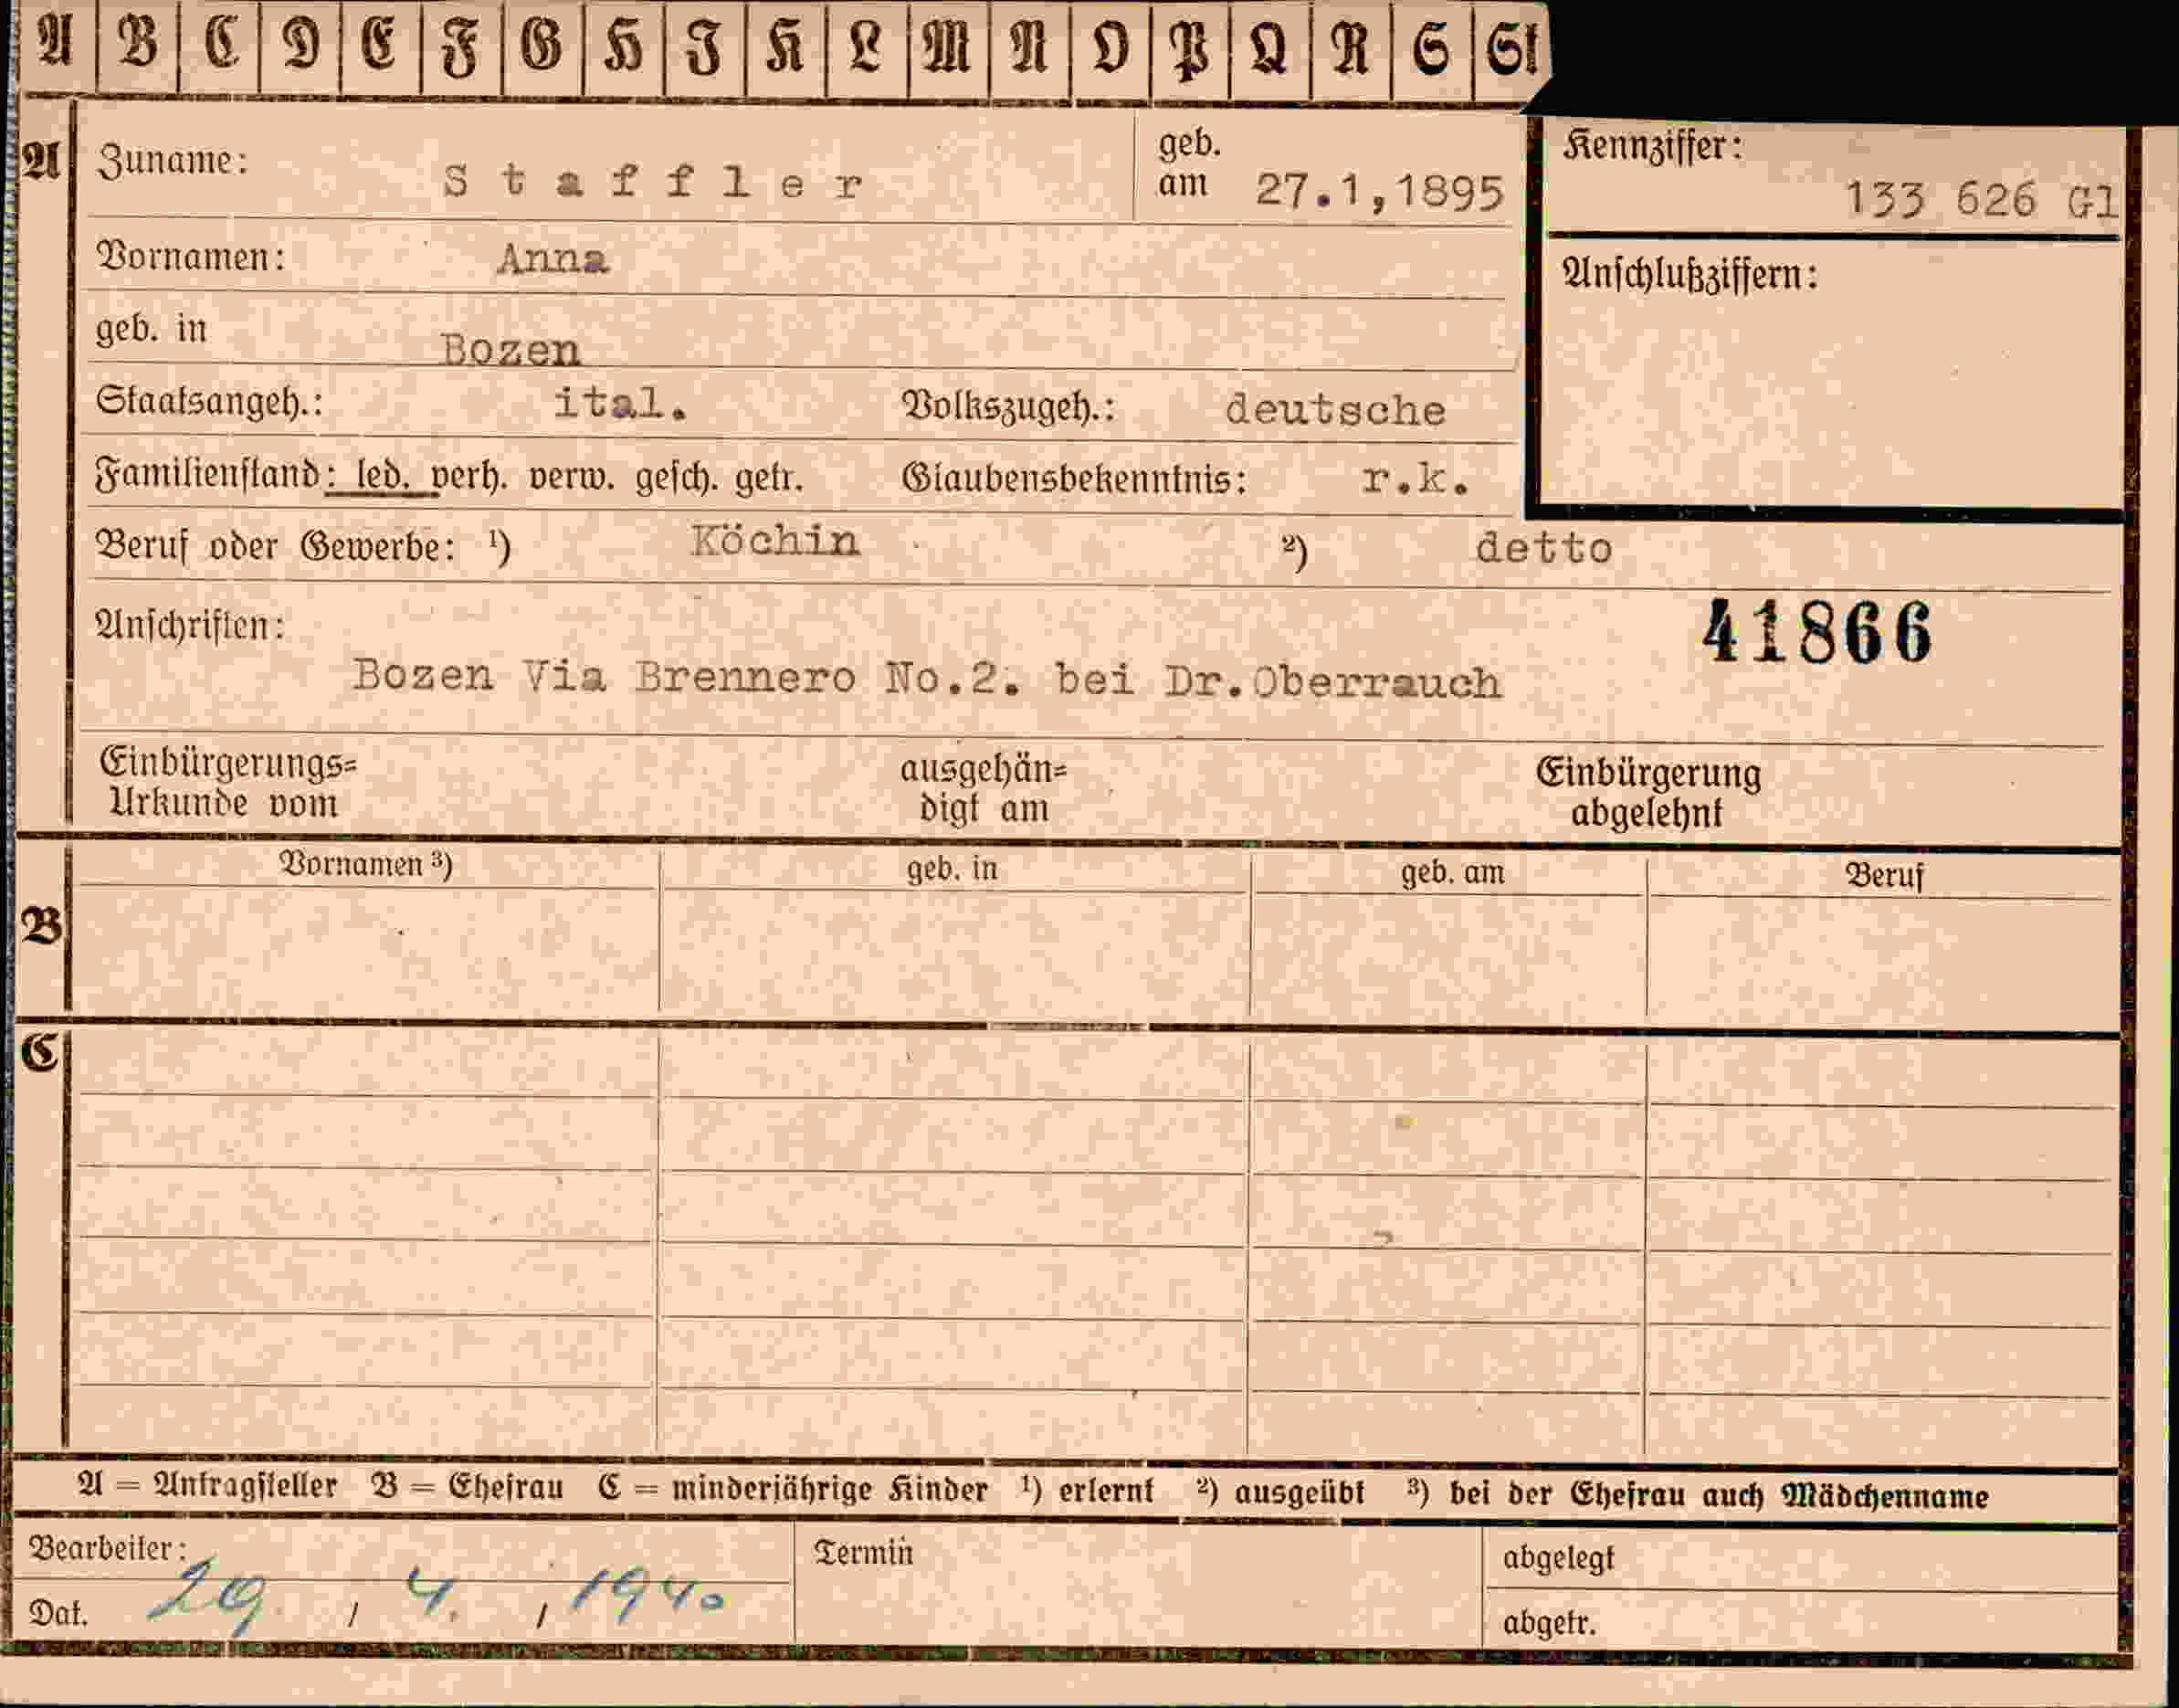 A B C D E F G H J K L M N O P Q R S St
A Zuname: Staffler geb. am 27.1,1895 Kennziffer: 133 626 Gl
Vornamen: Anna Anschlußziffern:
geb. in Bozen
Staatsangeh.: ital. Volkszugeh.: deutsche
Familienstand: led. verh. verw. gesch. getr. Glaubensbekenntnis: r.k.
Beruf oder Gewerbe: ¹) Köchin ²) detto
Anschriften: 41866
Bozen Via Brennero No.2. bei Dr.Oberrauch
Einbürgerungs= ausgehän= Einbürgerung
Urkunde vom digt am abgelehnt
Vornamen ³) geb. in geb. am Beruf
B
C
A = Antragsteller B = Ehefrau C = minderjährige Kinder ¹) erlernt ²) ausgeübt ³) bei der Ehefrau auch Mädchenname
Bearbeiter: Termin abgelegt
Dat. 29. / 4. / 1940 abgetr.